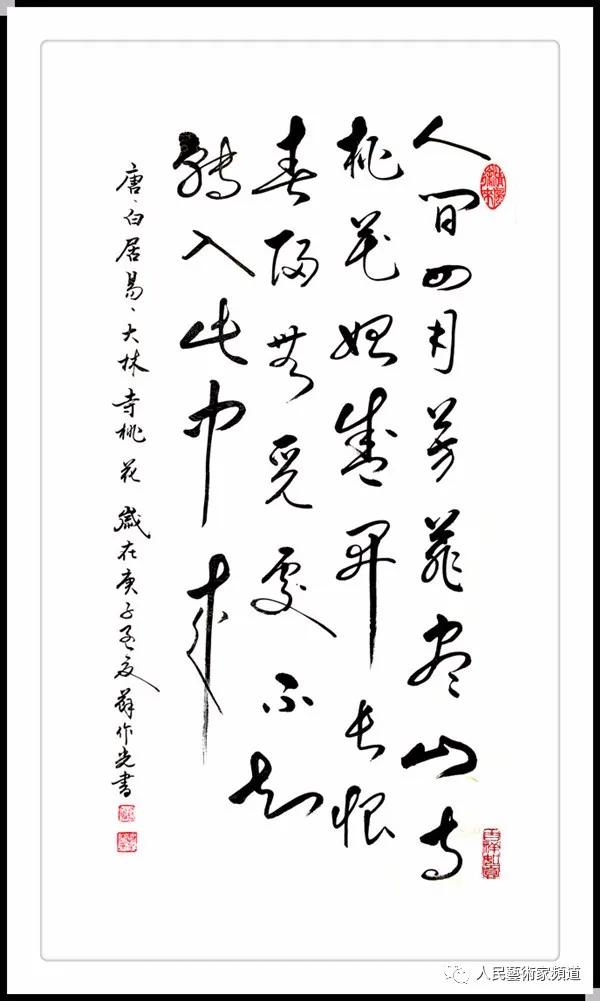 人間四月芳菲盡山寺
桃花始盛開長恨
春歸無覓處不知
轉入此中來
唐、白居易、大林寺桃花 歲在庚子孟夏 作光書
吉祥如意
人民藝術家頻道